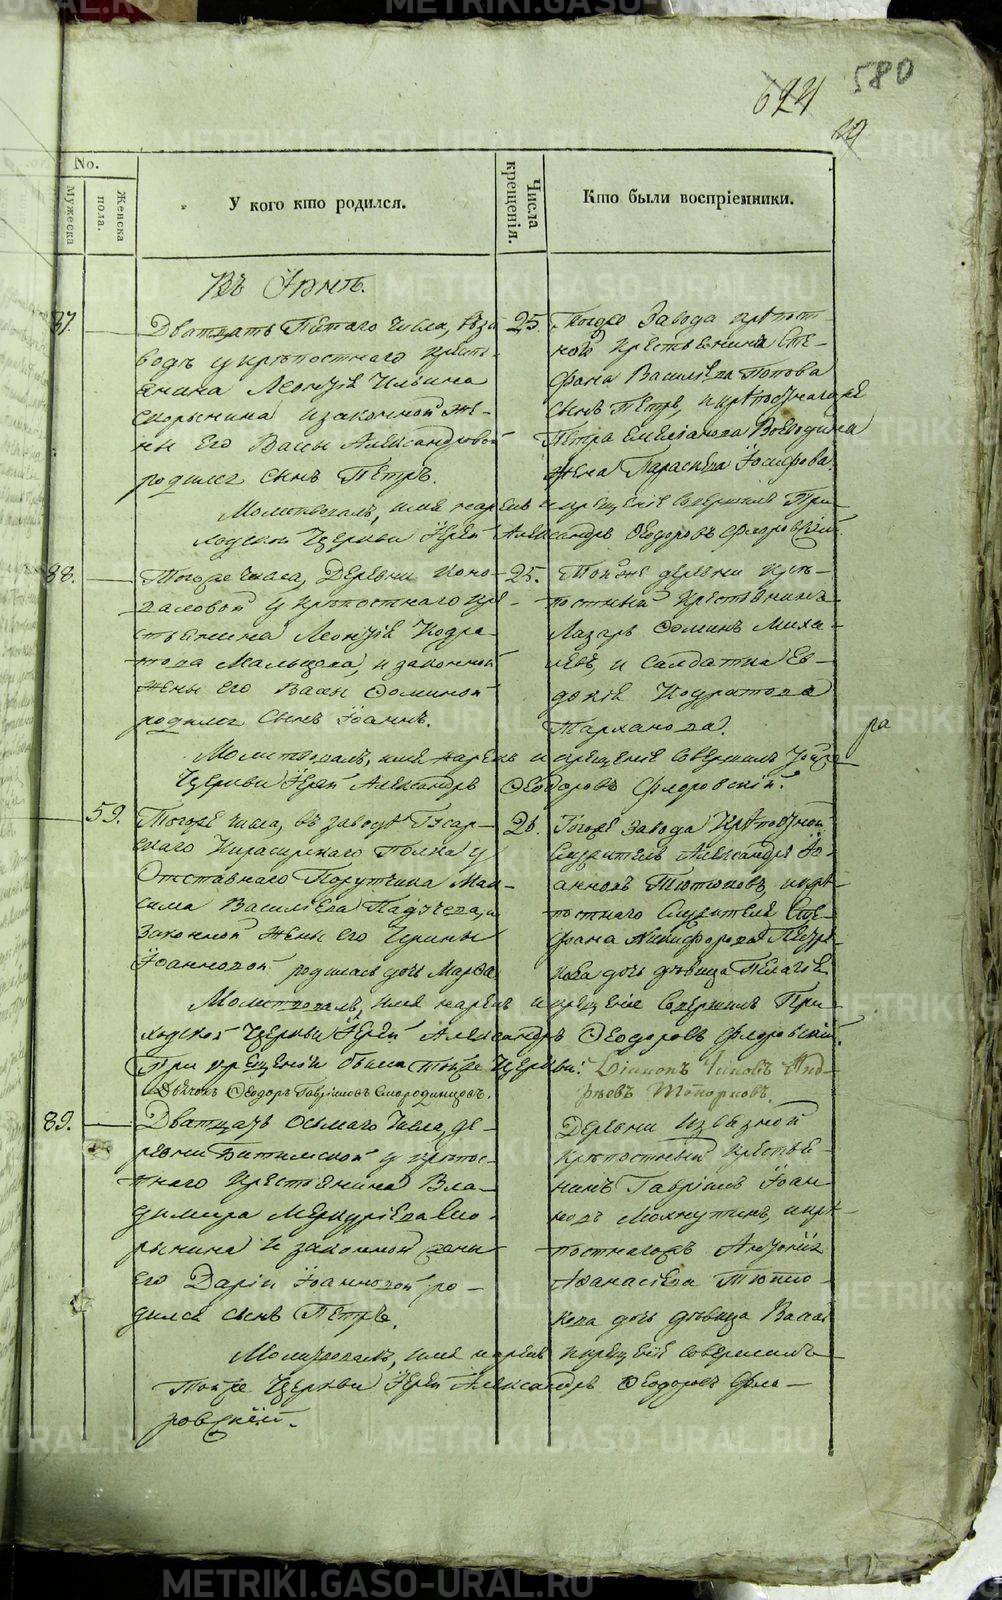 580
624
No.
Мужеска
Женска пола.
У кого кто родился.
Числа крещенія.
Кто были воспріемники.
Въ Іюнѣ.
87.
Дватцать Пятаго числа, въ за-
водѣ у крѣпостнаго кресть-
янина Леонтія Ильина
Скорынина и законной же-
ны его Вассы Александровой
родился сынъ Петръ.
25
Тогоже Завода крѣпост-
ной крестьянина Сте-
фана Василіева Попова
сынъ Петръ, и крѣпостнагожъ
Петра Емеліанова Воеводина
жена Параскева Іосифова.
Молитвовалъ, имя нарекъ и крещеніе совершилъ При-
ходской Церкви Іерей Александръ Ѳеодоровъ Флоровскій.
88.
Тогоже числа, Деревни Коно-
валовой у крѣпостнаго кре-
стьянина Леонтія Кодра-
това Мальцова, и законной
жены его Вассы Ѳоминой
родился сынъ Іоаннъ.
25.
Тойже деревни крѣ-
постный крестьянинъ
Лазарь Ѳоминъ Миха-
левъ, и Солдатка Ев-
докія Кодратова
Тарханова.
ра
Молитвовалъ, имя нарекъ и крещеніе совершилъ тойже
Церкви Іерей Александръ Ѳеодоровъ Флоровскій.
59.
Тогоже числа, въ заводѣ
Кирасирскаго Полка у
Отставнаго Порутчика Мак-
сима Василіева и
законной жены его Ирины
Іоанновой родилась дочь Марѳа
26.
Тогоже завода Крѣпостной
Служитель Александръ Іо-
анновъ Тютюковъ, и крѣ-
постнаго Служителя Сте-
фана Никифорова
дочь дѣвица Пелагія
Молитвовалъ, имя нарекъ и крещеніе совершилъ При-
ходской Церкви Іерей Александръ Ѳеодоровъ Флоровскій.
При крещеніи были тойже Церкви: Діаконъ Анд-
рѣевъ Топорковъ.
Дьячокъ Ѳеодоръ Гавріиловъ Смородинцовъ.
89.
Дватцать осьмаго числа, де-
ревни Битимской у крѣпос-
тнаго Крестьянина Вла-
димира Меркуріева Ско-
рынина и законной жены
его Даріи Іоанновой ро-
дился сынъ Петръ.
Деревни Извѣзной
Крѣпостный Крестья-
нинъ Гавріилъ Іоан-
новъ Мохнуткинъ, и крѣ-
постнагожъ Антонія
Аѳанасіева Тютю-
кова дочь дѣвица Васса
Молитвовалъ, имя нарекъ и крещеніе совершилъ
Тойже Церкви Іерей Александръ Ѳеодоровъ Фло-
ровскій.
METRIKI.GASO-URAL.RU